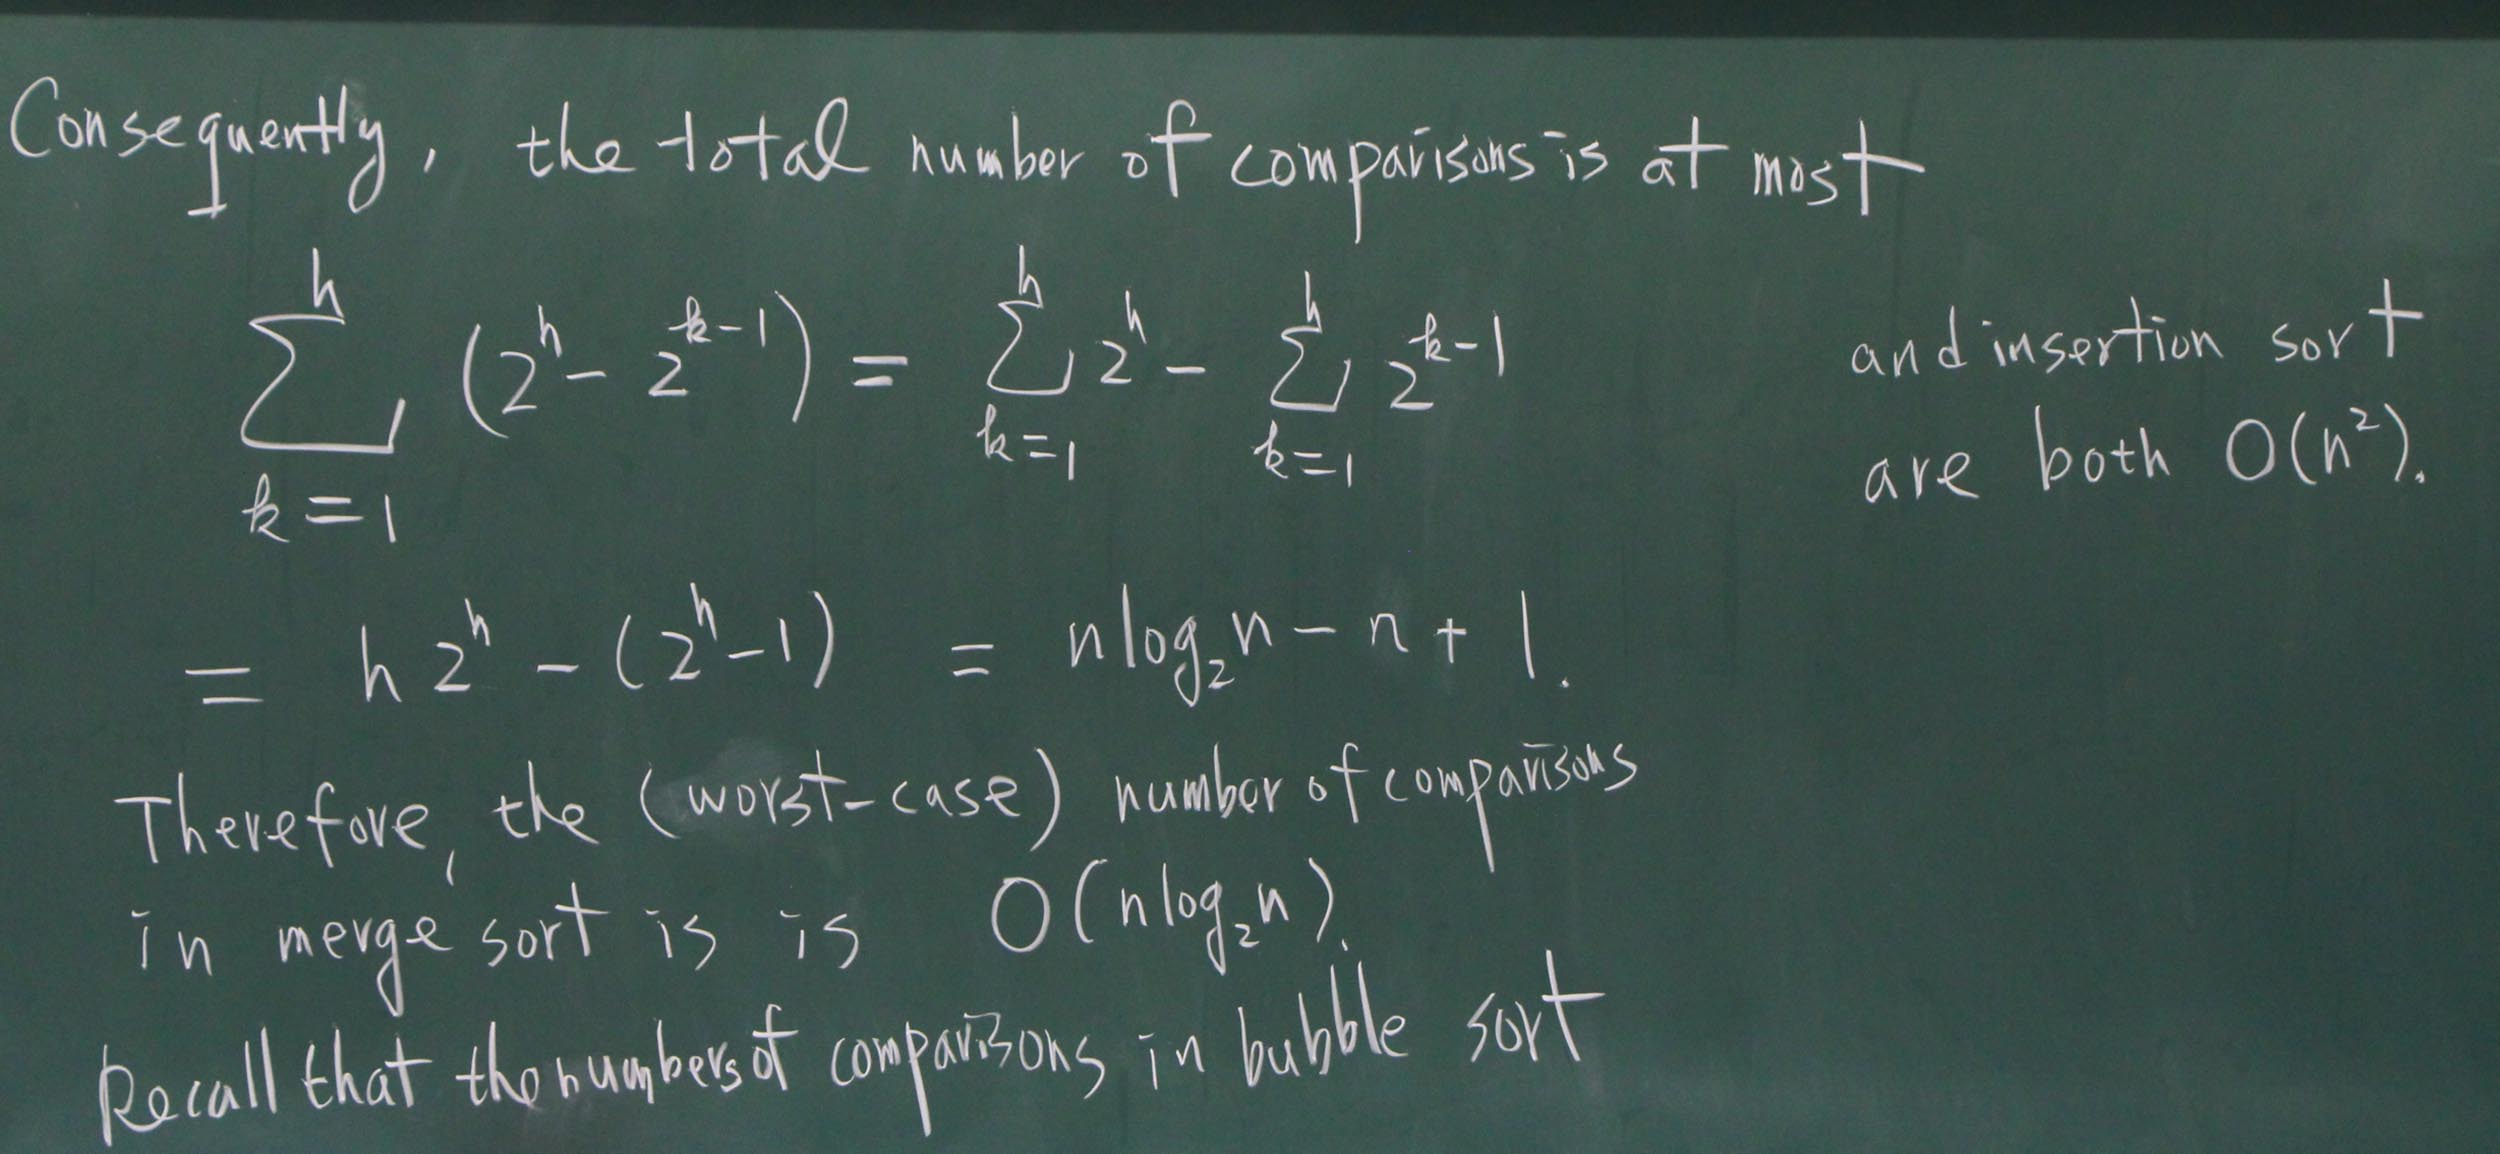 Consequently, the total number of comparisons is at most
∑_{k=1}^{h} (2^h - 2^{k-1}) = ∑_{k=1}^{h} 2^h - ∑_{k=1}^{h} 2^{k-1}
= h 2^h - (2^h - 1) = n log_2 n - n + 1.
Therefore, the (worst-case) number of comparisons
in merge sort is is O(n log_2 n).
Recall that the numbers of comparisons in bubble sort
and insertion sort
are both O(n^2).